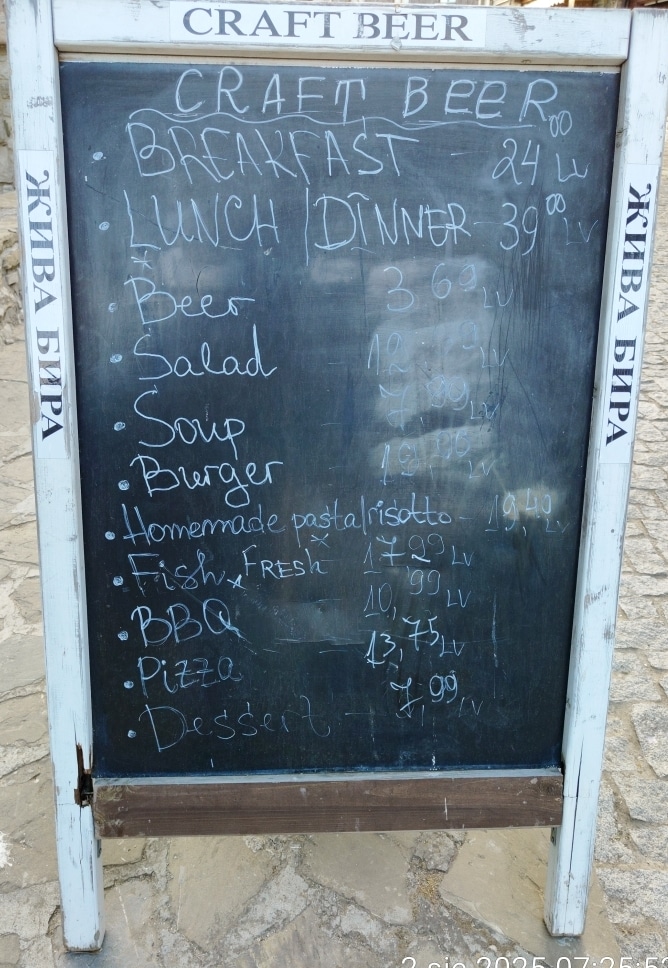 CRAFT BEER
ЖИВА БИРА
ЖИВА БИРА
CRAFT BEER
• BREAKFAST - 24 00 LV
• LUNCH | DINNER - 39 00 LV
• Beer 3,69 LV
• Salad - 12, LV
• Soup 7,99 LV
• Burger - LV
• Homemade pasta/risotto - 19,49 LV
• Fish x FRESH x 17,99 LV
• BBQ 10,99 LV
• Pizza - 13,75 LV
• Dessert - 7,99 LV
2 sie 2025 07:25:5